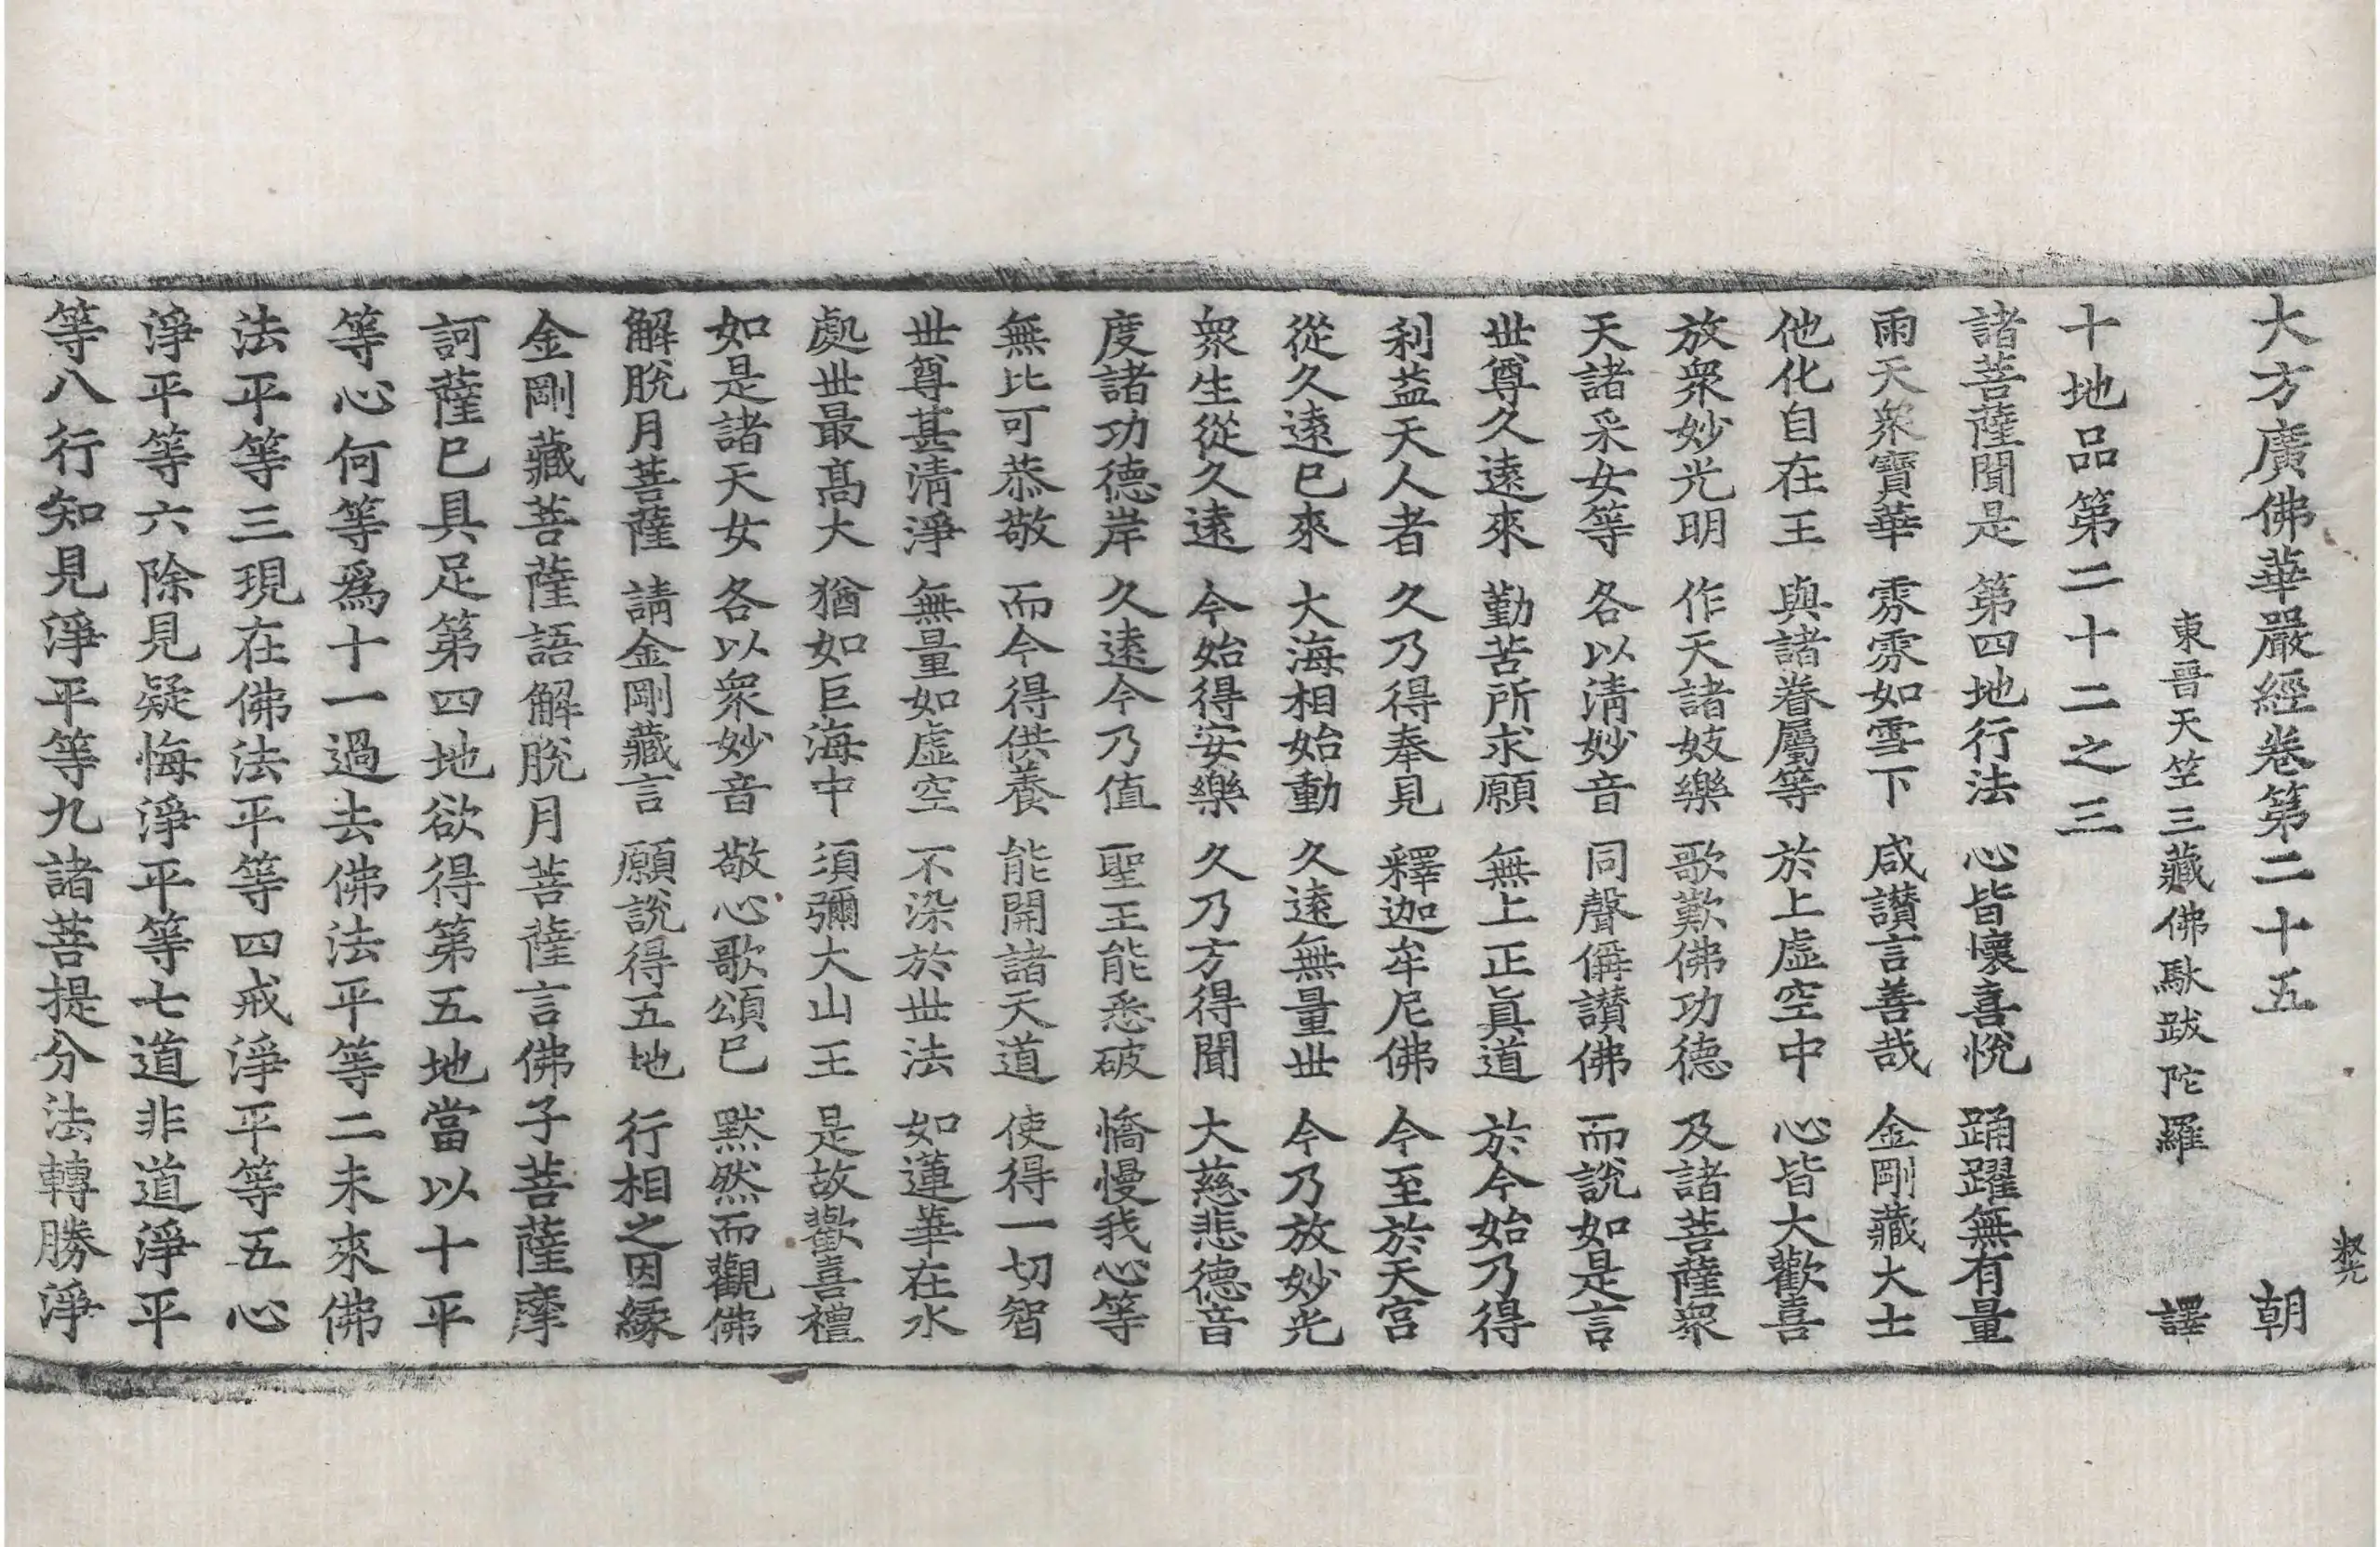 大方廣佛華嚴經卷第二十五 朝
東晉天竺三藏佛馱跋陀羅 譯
十地品第二十二之三
諸菩薩聞是 第四地行法 心皆懷喜悅 踊躍無有量
雨天衆寶華 雰雰如雪下 咸讃言善哉 金剛藏大士
他化自在王 與諸眷屬等 於上虛空中 心皆大歡喜
放衆妙光明 作天諸妓樂 歌歎佛功德 及諸菩薩衆
天諸采女等 各以淸妙音 同聲俱讃佛 而說如是言
世尊久遠來 勤苦所求願 無上正眞道 於今始乃得
利益天人者 久乃得奉見 釋迦牟尼佛 今至於天宮
從久遠已來 大海相始動 久遠無量世 今乃放妙光
衆生從久遠 今始得安樂 久乃方得聞 大慈悲德音
度諸功德岸 久遠今乃值 聖王能悉破 憍慢我心等
無比可恭敬 而今得供養 能開諸天道 使得一切智
世尊甚淸淨 無量如虛空 不染於世法 如蓮華在水
處世最高大 猶如巨海中 須彌大山王 是故歡喜禮
如是諸天女 各以衆妙音 敬心歌頌已 默然而觀佛
解脫月菩薩 請金剛藏言 願說得五地 行相之因緣
金剛藏菩薩語解脫月菩薩言佛子菩薩摩
訶薩已具足第四地欲得第五地當以十平
等心何等爲十一過去佛法平等二未來佛
法平等三現在佛法平等四戒淨平等五心
淨平等六除見疑悔淨平等七道非道淨平
等八行知見淨平等九諸菩提分法轉勝淨